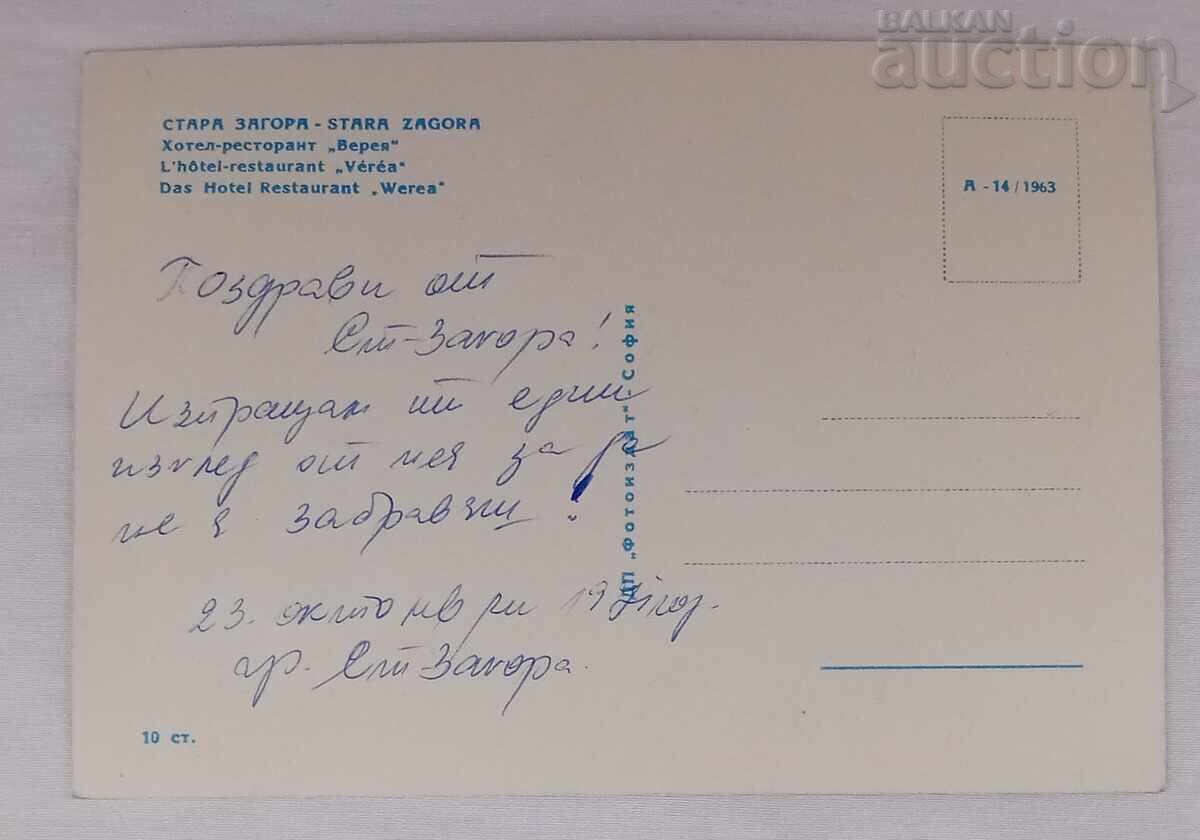 BALKAN
auction
СТАРА ЗАГОРА - STARA ZAGORA
Хотел-ресторант „Верея“
L'hôtel-restaurant „Véréa“
Das Hotel Restaurant „Werea“
А - 14 / 1963
Поздрави от
Ст-Загора!
Изпращам ти един
изглед от нея за да
не я забравяш!
23. октомври 19
гр. Ст-Загора.
ДП „Фотоиздат“ - София
10 ст.